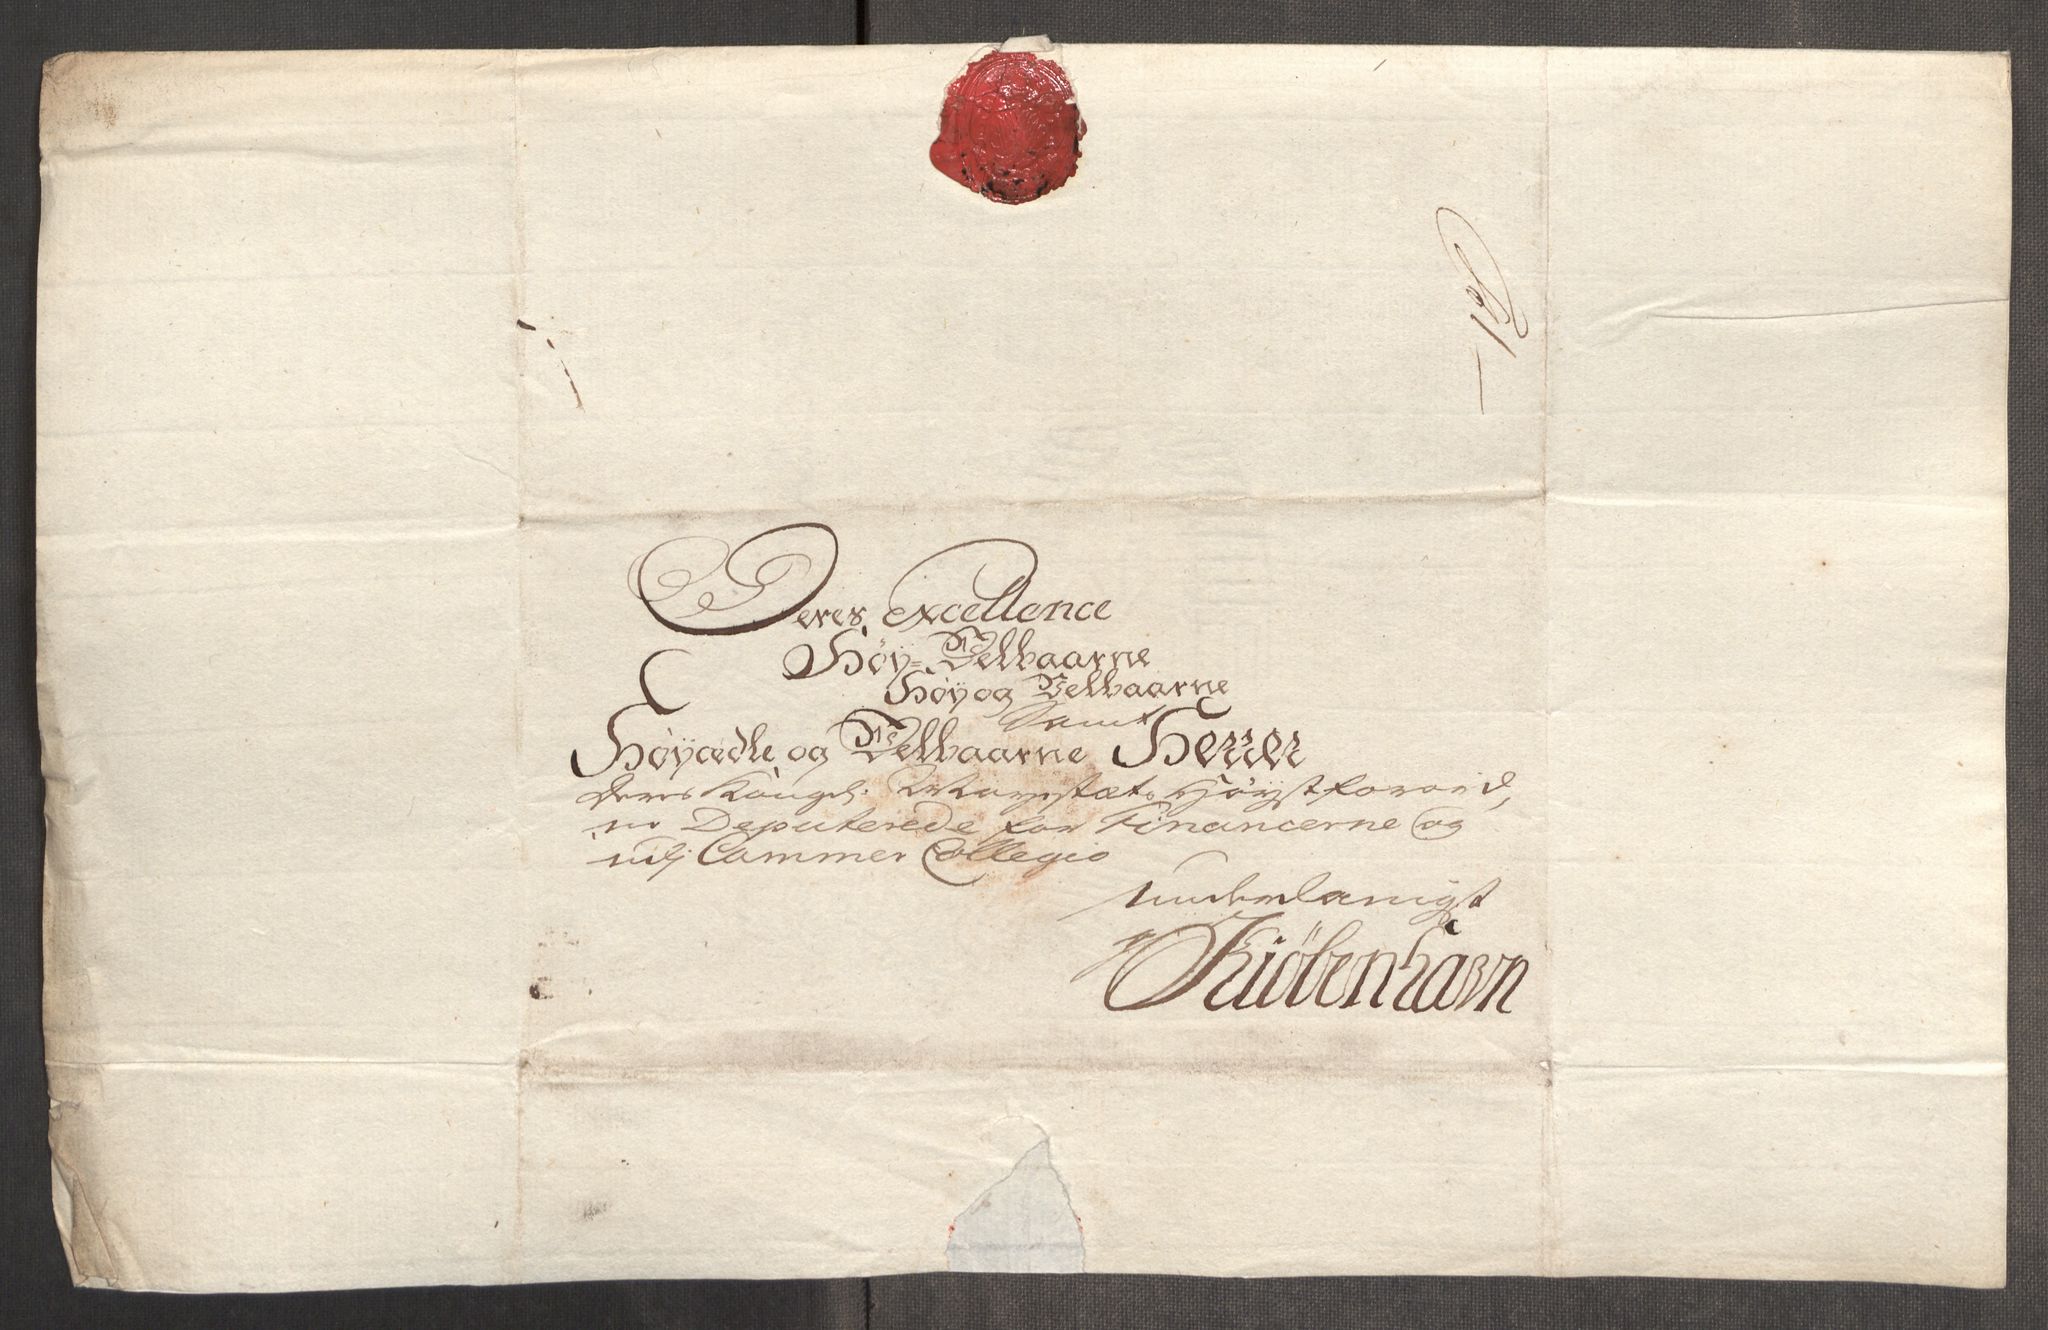 Deres Excellence
Høy-Velbaarne
Høy og Velbaarne
Samt
Høyædle og Velbaarne Herrer
Deres Kongel: Mayestæts Høystforord,
ne Deputerede for Financerne og
udj Cammer Collegio
underdanigst
Kiøbenhavn